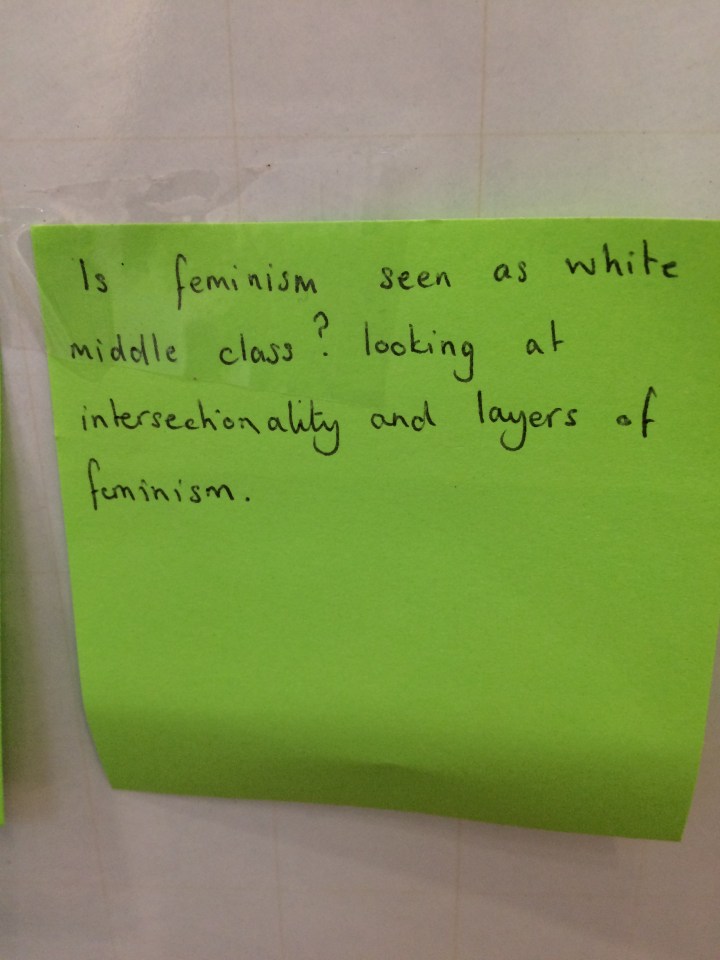 Is feminism seen as white
middle class? looking at
intersectionality and layers of
feminism.